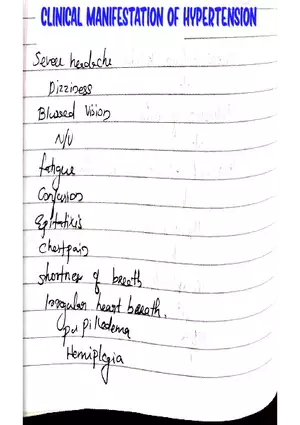 CLINICAL MANIFESTATION OF HYPERTENSION
Severe headache
Dizziness
Blussed vision
N/V
fatigue
Confusion
Epitatixis
chestpain
shortner of breath
Irregular heart breath.
pupilledema
Hemiplegia